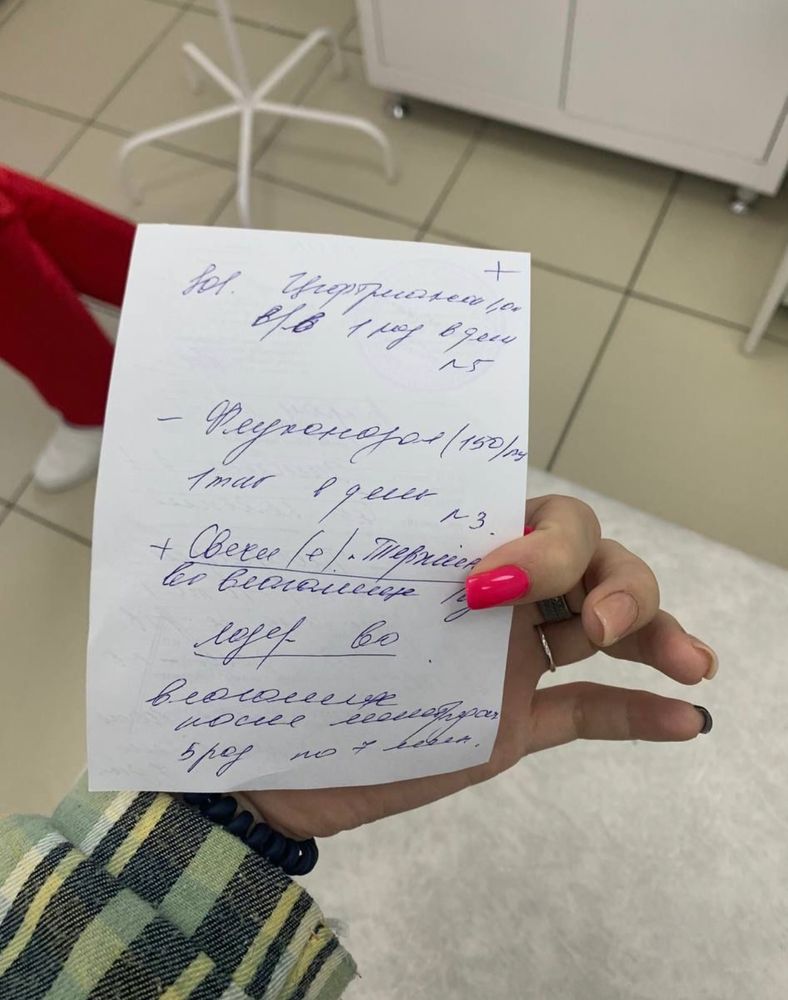 +
Sol. Цефтриаксон 1,0
в/в 1 раз в день
№5
– Флуконазол (150) мг
1 таб в день
№3.
+ Свечи (е). Тержинан
во влагалище
лазер во
влагалище
после менструации
5 раз по 7 мин.